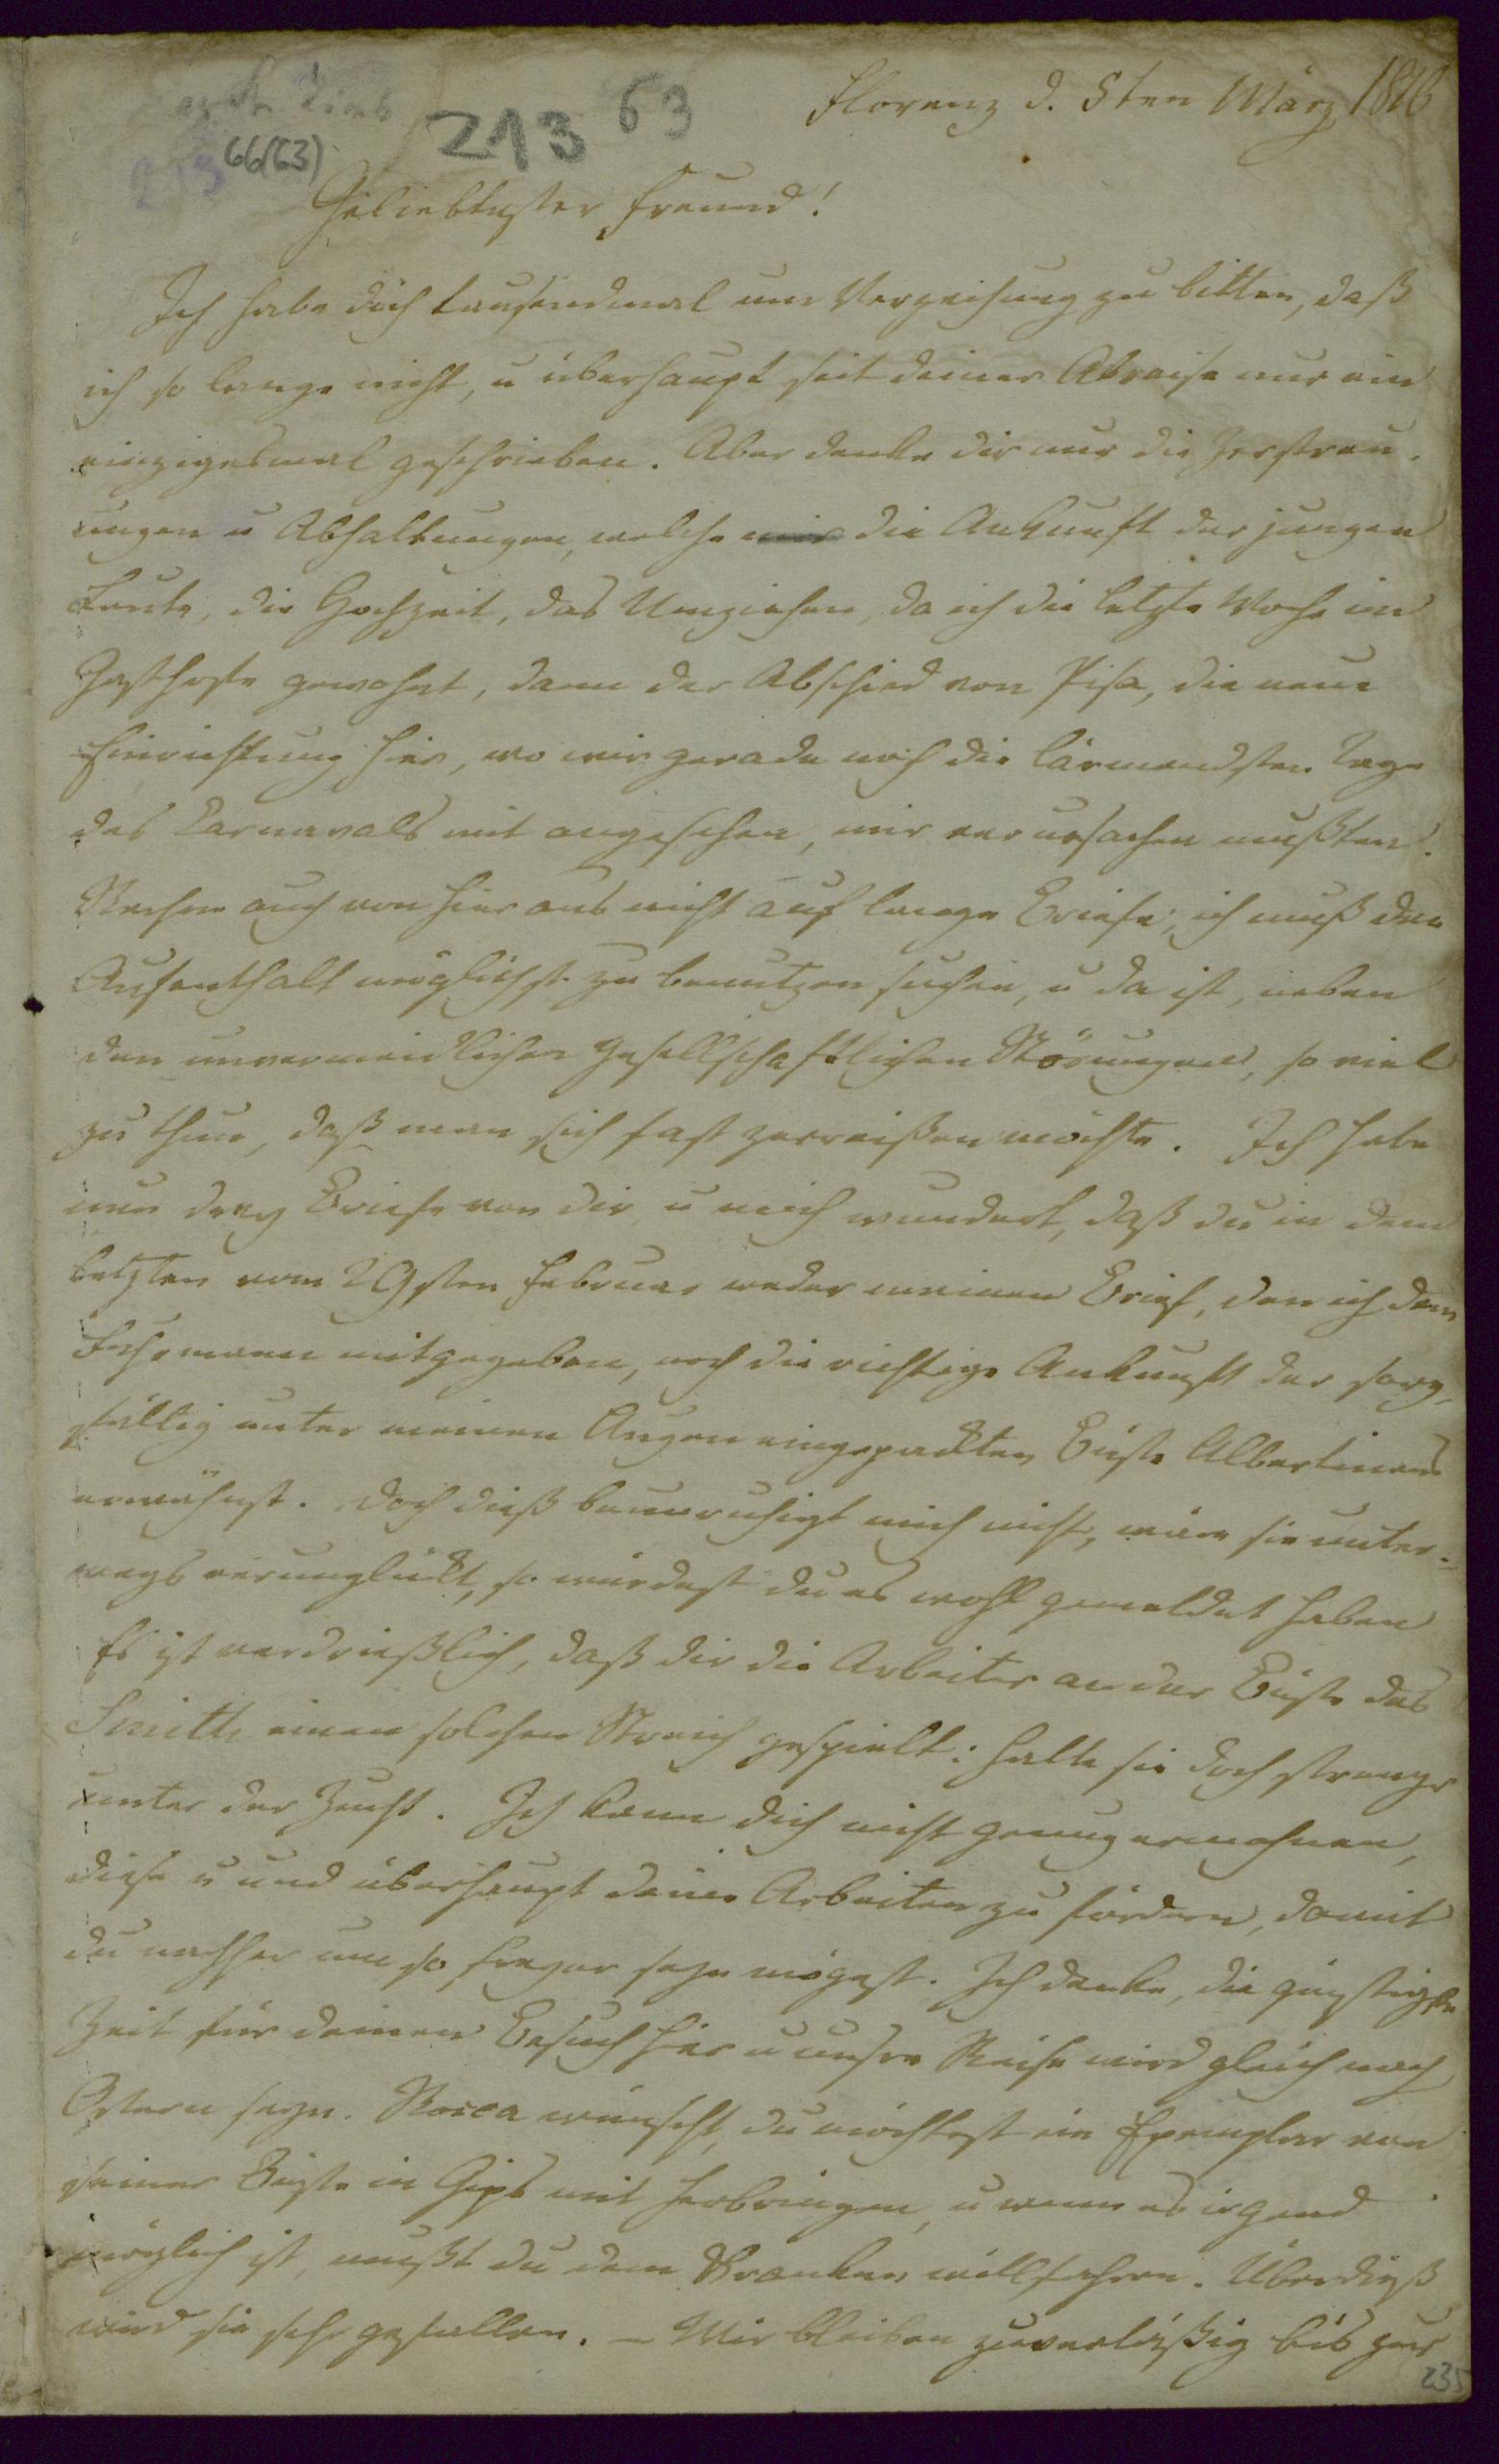 213 63
66(63)
213
Florenz d. 5ten März 1816
Geliebtester Freund!
Ich habe dich tausendmal um Verzeihung zu bitten, daß
ich so lange nicht, u überhaupt seit deiner Abreise nur ein
einzigesmal geschrieben. Aber denke dir nur die Zerstreu-
ungen u Abhaltungen, welche mir die Ankunft der jungen
Leute, die Hochzeit, das Umziehen, da ich die letzte Woche im
Gasthofe gewohnt, dann der Abschied von Pisa, die neue
Einrichtung hier, wo wir gerade noch die lärmendsten Tage
des Carnavals mit angesehen, mir verursachen mußten.
Rechne auch von hier aus nicht auf lange Briefe; ich muß den
Aufenthalt möglichst zu benutzen suchen, u da ist, neben
den unvermeidlichen gesellschaftlichen Störungen, so viel
zu thun, daß man sich fast zerreißen möchte. Ich habe
nun drey Briefe von dir u mich wundert, daß du in dem
letzten vom 29sten Februar weder meinen Brief, den ich dem
Fuhrmann mitgegeben, noch die richtige Ankunft der sorg-
fältig unter meinen Augen eingepackten Büste Albertinens
erwähnst. Doch dieß beunruhigt mich nicht, wäre sie unter-
wegs verunglückt, so würdest du es wohl gemeldet haben
Es ist verdrießlich, daß dir die Arbeiter an der Büste des
Smith einen solchen Streich gespielt: halte sie doch strenge
unter der Zucht. Ich kann dich nicht genug ermahnen,
diese u und überhaupt deine Arbeiten zu fördern, damit
du nachher um so freyer seyn mögest. Ich denke, die günstigste
Zeit für deinen Besuch hier u unsre Reise wird gleich nach
Ostern seyn. Rocca wünscht, du möchtest ein Exemplar von
seiner Büste in Gips mit herbringen, u wenn es irgend
möglich ist, mußt du dem Kranken willfahren. Überdieß
wird sie sehr gefallen. – Wir bleiben zuverläßig bis zur
235